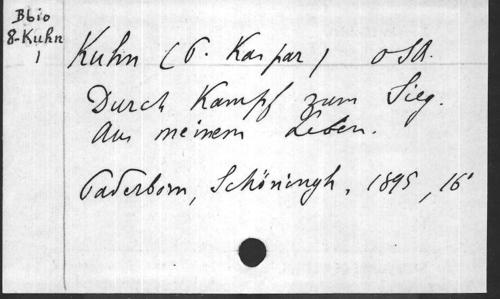 Bbio
8-Kuhn
1
Kuhn (P. Kaspar) OSB.
Durch Kampf zum Sieg.
Aus meinem Leben.
Paderborn, Schöningh, 1895, 16°